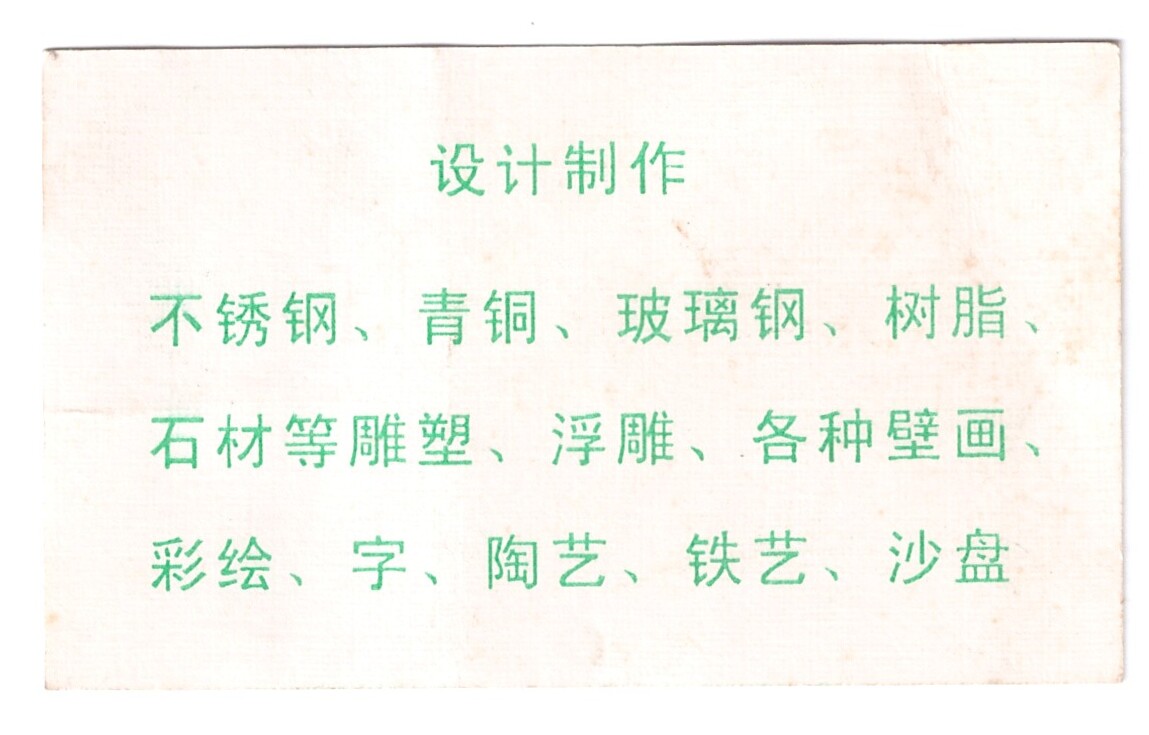 设计制作
不锈钢、青铜、玻璃钢、树脂、
石材等雕塑、浮雕、各种壁画、
彩绘、字、陶艺、铁艺、沙盘